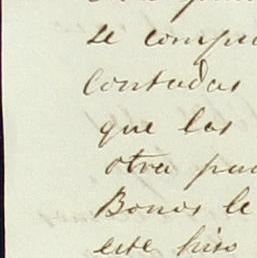 se compu
Contadas
que las
otra par
Bonos le
este hiso